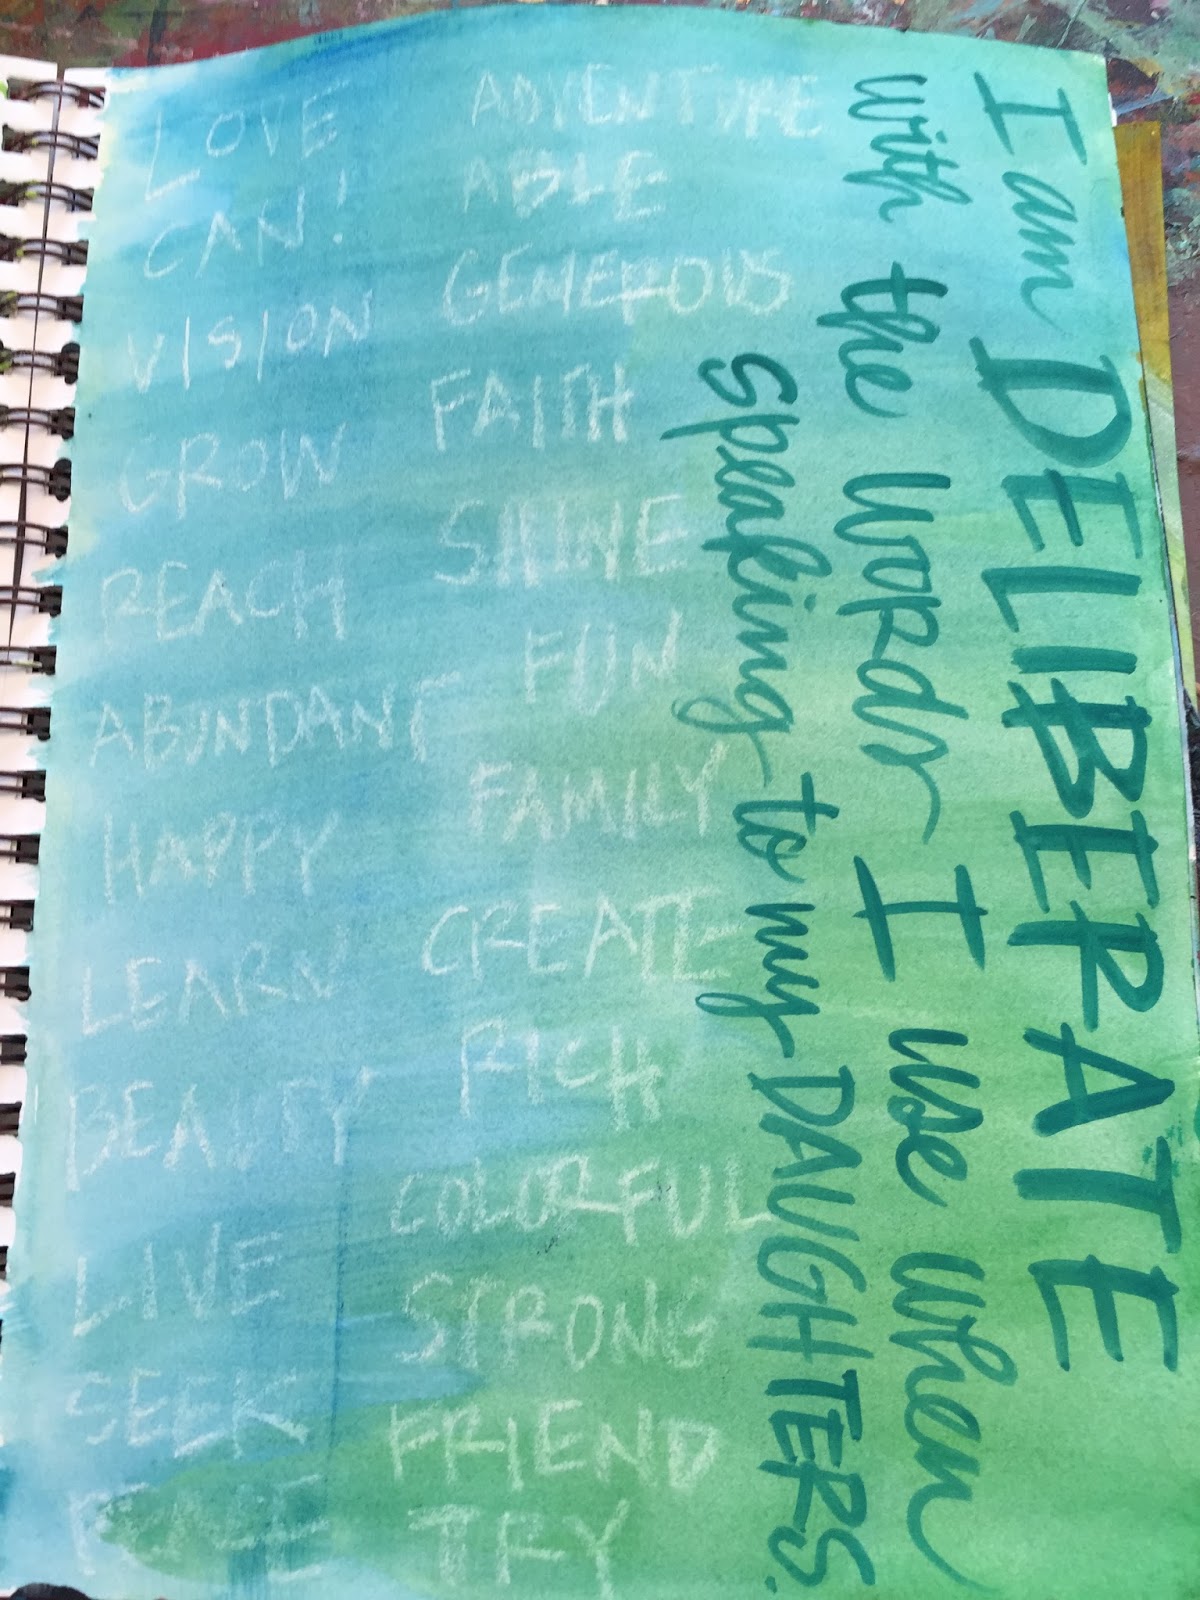 I am DELIBERATE
with the words I use when
speaking to my DAUGHTERS.
LOVE
CAN!
VISION
GROW
REACH
HAPPY
LEARN
BEAUTY
LIVE
SEEK
ADVENTURE
ABLE
GENEROUS
FAITH
SHINE
FUN
FAMILY
CREATE
RICH
COLORFUL
STRONG
FRIEND
TRY